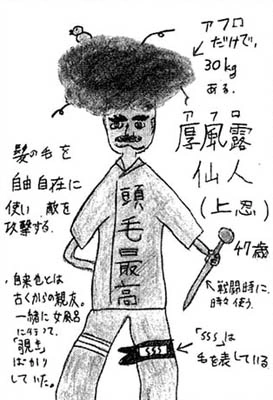 アフロ
だけで、
30kg
ある.
アフロ
厚風露
仙人
(上忍)
47歳
髪の毛を
自由自在に
使い 敵を
攻撃する.
頭毛最高
戦闘時に
時々使う.
・自来也とは
古くからの親友。
一緒に女風呂
に行って、
「覗き」
ばかり
していた。
「SSS」は
毛を表している
SSS